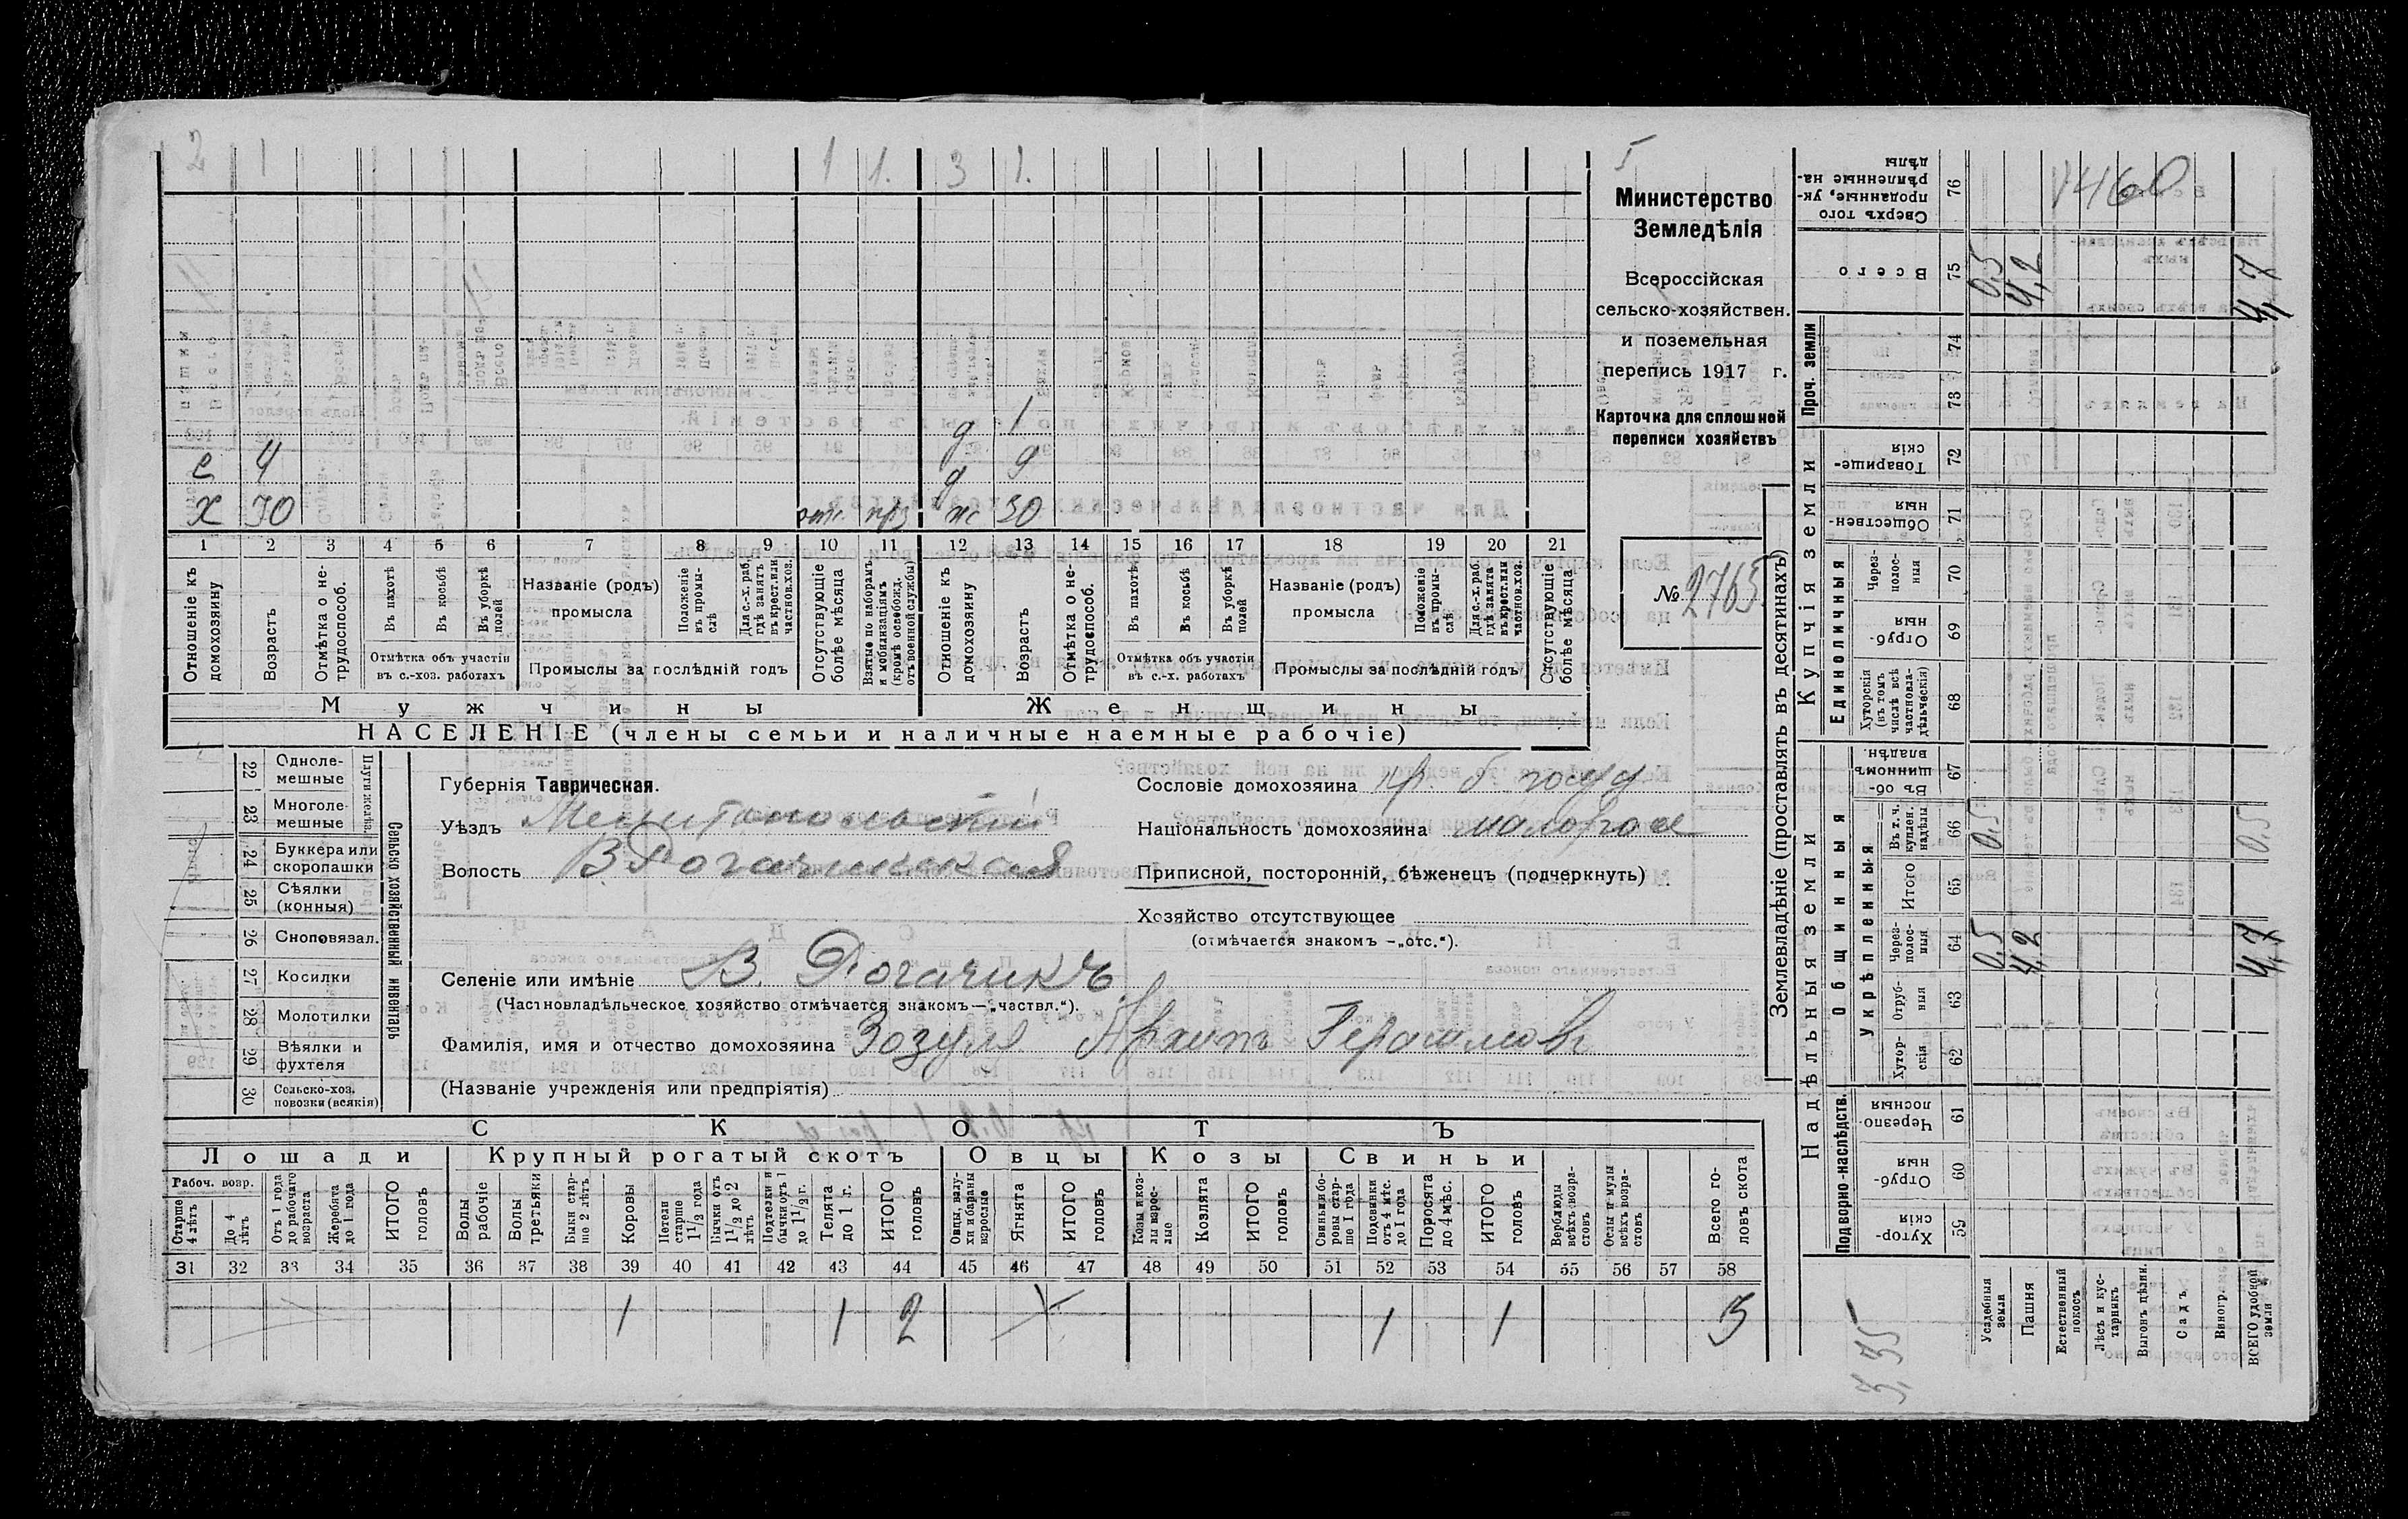 2 1 1 1. 3 1.
д 1
е 4 д 9
х 30 отс. прз ж 30
1 2 3 4 5 6 7 8 9 10 11 12 13 14 15 16 17 18 19 20 21
Отношеніе къ домохозяину
Возрастъ
Отмѣтка о не-трудоспособ.
Въ пахотѣ
Въ косьбѣ
Въ уборкѣ полей
Отмѣтка объ участіи
въ с.-хоз. работахъ
Названіе (родъ)
промысла
Положеніе въ промы-слѣ
Для с.-х. раб. гдѣ занятъ въ крест. или частнов. хоз.
Промыслы за послѣдній годъ
Отсутствующіе болѣе мѣсяца
Взятые по наборамъ и мобилизаціямъ (кромѣ освобожд. отъ военной службы)
Отношеніе къ домохозяину
Возрастъ
Отмѣтка о не-трудоспособ.
Въ пахотѣ
Въ косьбѣ
Въ уборкѣ полей
Отмѣтка объ участіи
въ с.-х. работахъ
Названіе (родъ)
промысла
Положеніе въ промы-слѣ
Для с.-х. раб. гдѣ занята въ крест. или частнов. хоз.
Промыслы за послѣдній годъ
Отсутствующіе болѣе мѣсяца
Мужчины Женщины
НАСЕЛЕНІЕ (члены семьи и наличные наемные рабочіе)
Министерство
Земледѣлія
Всероссійская
сельско-хозяйствен.
и поземельная
перепись 1917 г.
Карточка для сплошной
переписи хозяйствъ
№ 2765
Сельско хозяйственный инвентарь
Плуги желѣз.
22 Одноле-мешные
23 Многоле-мешные
24 Буккера или скоропашки
25 Сѣялки (конныя)
26 Сноповязал.
27 Косилки
28 Молотилки
29 Вѣялки и фухтеля
30 Сельско-хоз. повозки (всякія)
Губернія Таврическая.
Уѣздъ Мелитопольскій
Волость В Рогачикская
Сословіе домохозяина кр. б. госуд
Національность домохозяина малорос
Приписной, посторонній, бѣженецъ (подчеркнуть)
Хозяйство отсутствующее
(отмѣчается знакомъ —„отс.“).
Селеніе или имѣніе В. Рогачикъ
(Частновладѣльческое хозяйство отмѣчается знакомъ—„частвл.“).
Фамилія, имя и отчество домохозяина Зозуля Архипъ Герасимовъ
(Названіе учрежденія или предпріятія)
СКОТЪ
Лошади Крупный рогатый скотъ Овцы Козы Свиньи
Рабоч. возр.
Старше 4 лѣтъ
До 4 лѣтъ
Отъ 1 года до рабочаго возраста
Жеребята до 1 года
ИТОГО головъ
Волы рабочіе
Волы третьяки
Быки стар-ше 2 лѣтъ
Коровы
Нетели старше 1 1/2 года
Бычки отъ 1 1/2 до 2 лѣтъ
Подтелки и бычки отъ 1 до 1 1/2 г.
Телята до 1 г.
ИТОГО головъ
Овцы, валу-хи и бараны взрослые
Ягнята
ИТОГО головъ
Козы и коз-лы взрос-лые
Козлята
ИТОГО головъ
Свиньи и бо-ровы стар-ше 1 года
Подсвинки отъ 4 мѣс. до 1 года
Поросята до 4 мѣс.
ИТОГО головъ
Верблюды всѣхъ возра-стовъ
Ослы и мулы всѣхъ возра-стовъ
Всего го-ловъ скота
31 32 33 34 35 36 37 38 39 40 41 42 43 44 45 46 47 48 49 50 51 52 53 54 55 56 57 58
1 1 2 1 1 3
Землевладѣніе (проставлять въ десятинахъ)
Надѣльныя земли Купчія земли Проч. земли
Подворно-наслѣдств. Общинныя Единоличныя
Укрѣпленныя
59 Хутор-скія
60 Отруб-ныя
61 Черезпо-лосныя
62 Хутор-скія
63 Отруб-ныя
64 Через-полос-ныя
65 Итого
66 Въ т. ч. куплен. надѣлы
67 Въ об-щинномъ владѣн.
68 Хуторскія (въ томъ числѣ всѣ частновла-дѣльческія)
69 Отруб-ныя
70 Через-полос-ныя
71 Обществен-ныя
72 Товарище-скія
73
74
75 Всего
76 Сверхъ того проданные, ук-рѣпленные на-дѣлы
Усадебная земля 0,5 0,5 0,5
Пашня 4,2 4,2
Естественный покосъ
Лѣсъ и кус-тарникъ
Выгонъ цѣлин.
Садъ
Виногр.
ВСЕГО удобной земли 4,7 0,5 4,7
460
3,35